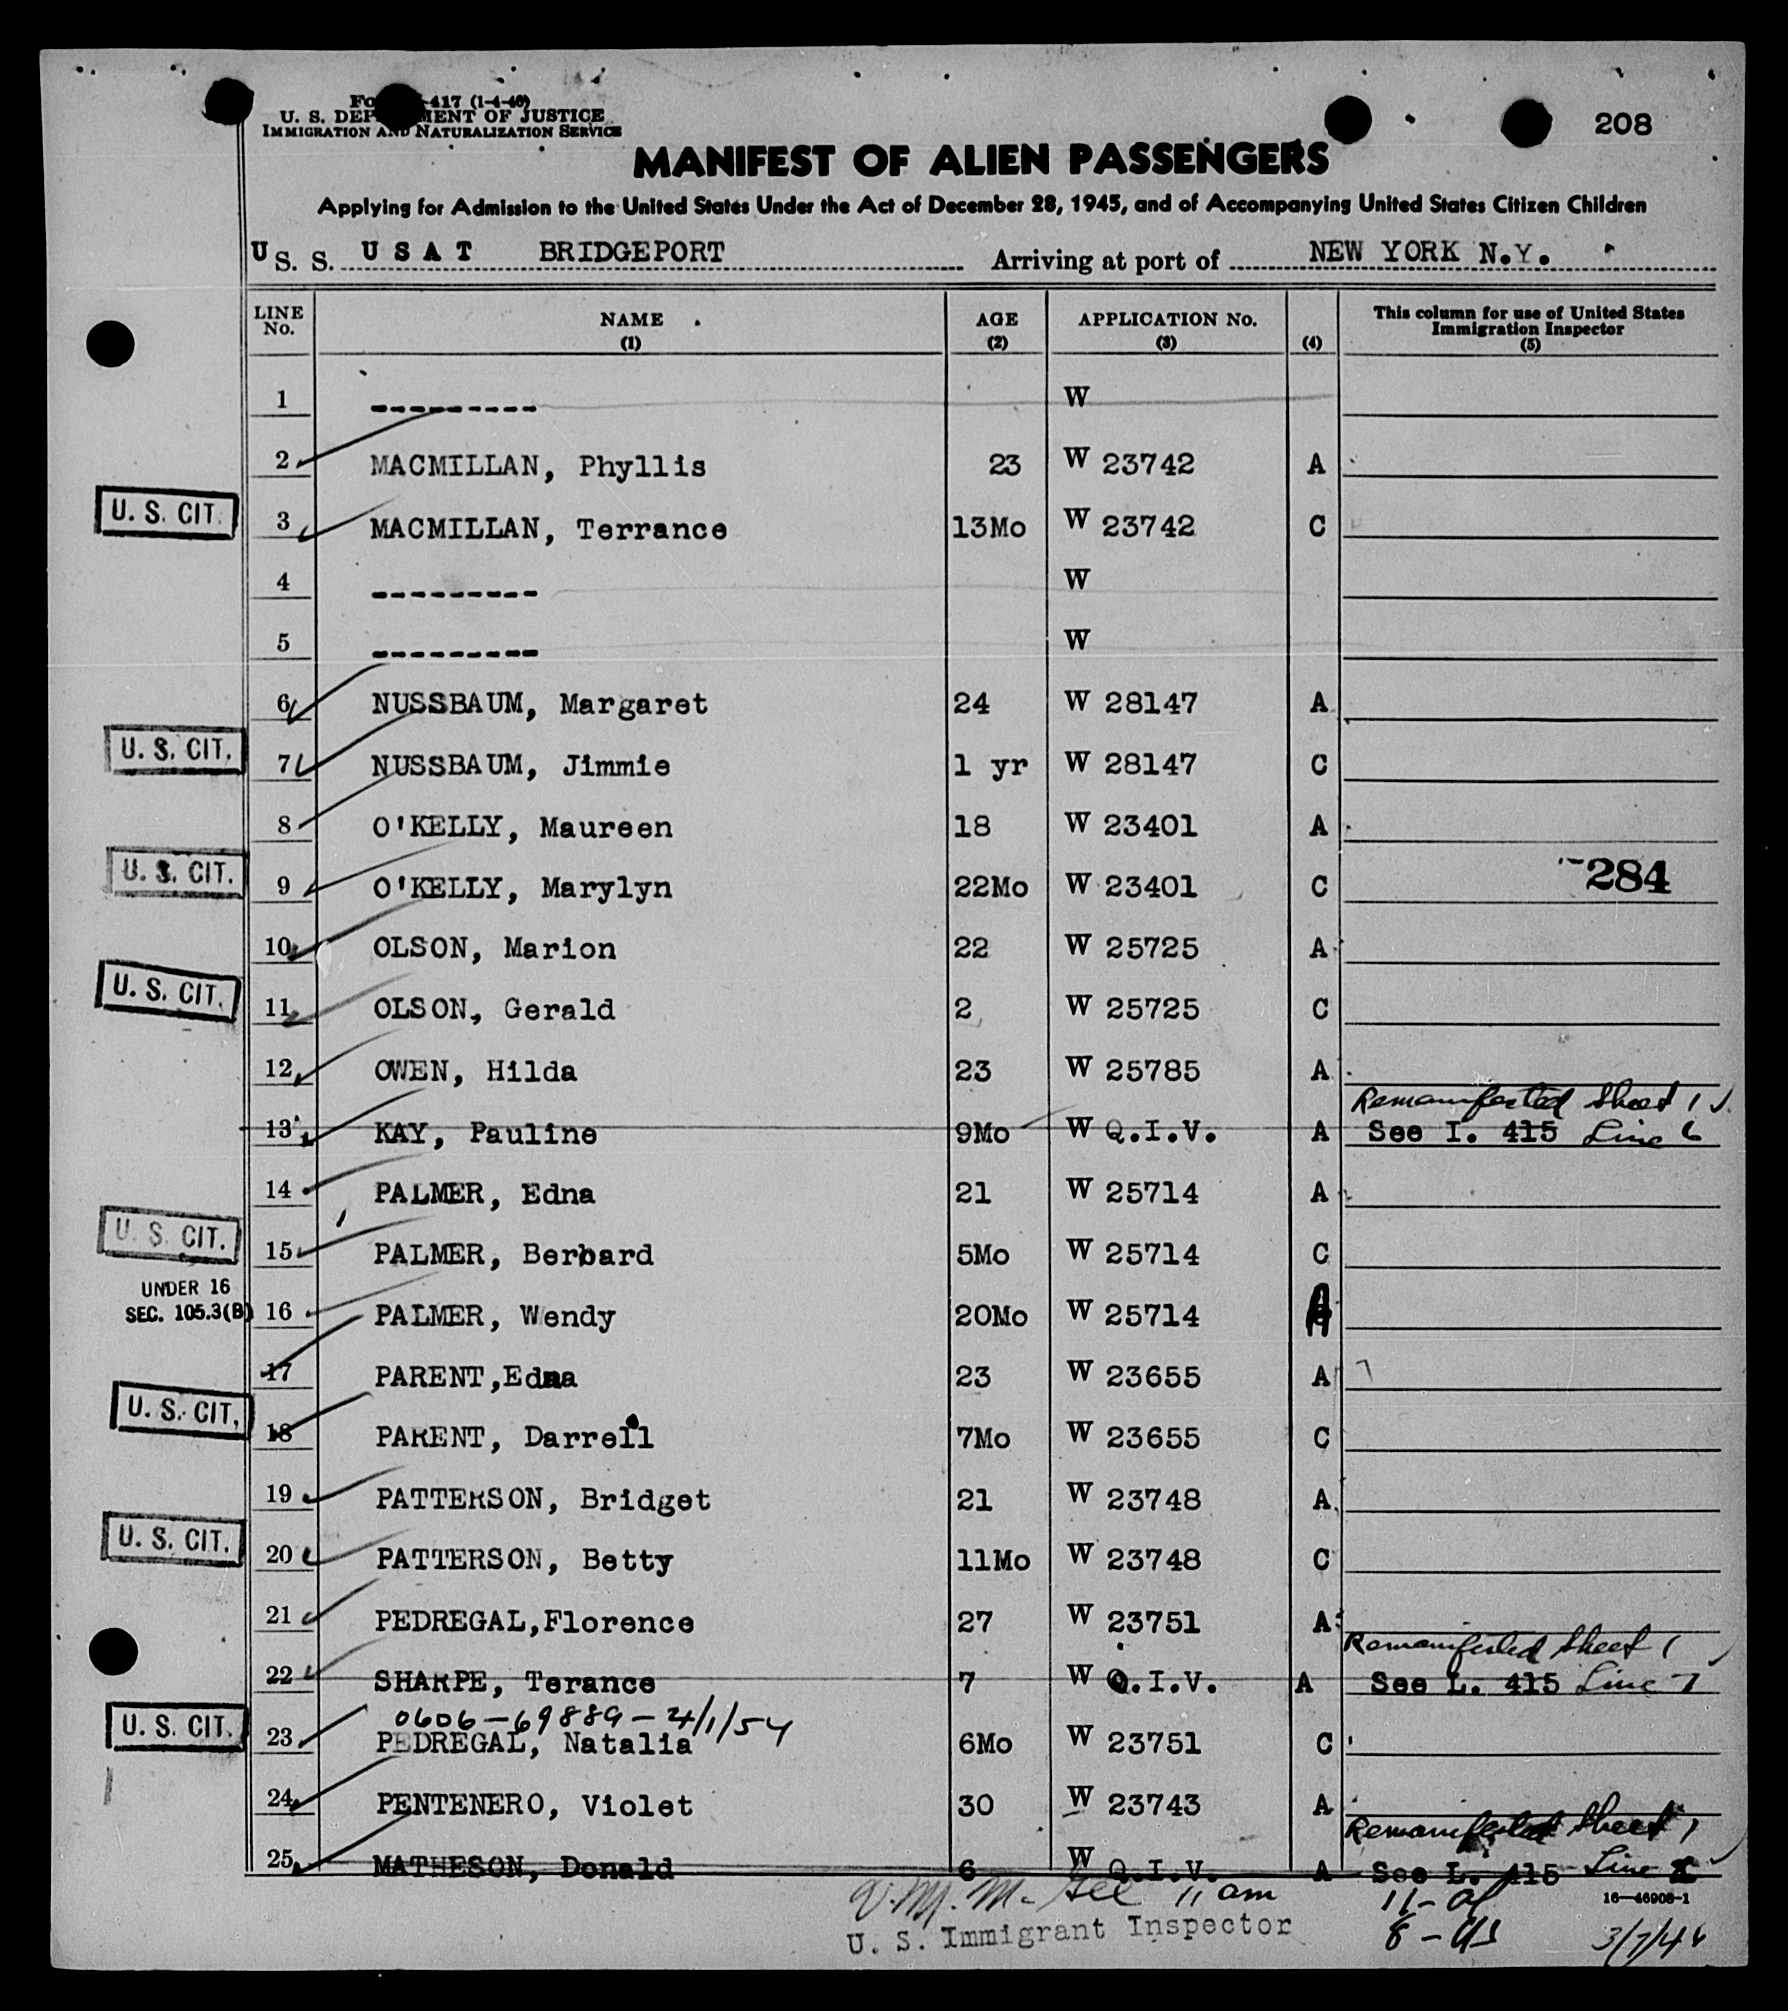 Form I-417 (1-4-46)
U. S. DEPARTMENT OF JUSTICE
IMMIGRATION AND NATURALIZATION SERVICE
208
MANIFEST OF ALIEN PASSENGERS
Applying for Admission to the United States Under the Act of December 28, 1945, and of Accompanying United States Citizen Children
U S. S. U S A T BRIDGEPORT Arriving at port of NEW YORK N.Y.
LINE No. NAME (1) AGE (2) APPLICATION No. (3) (4) This column for use of United States Immigration Inspector (5)
1 --------- W
2 MACMILLAN, Phyllis 23 W 23742 A
U. S. CIT. 3 MACMILLAN, Terrance 13Mo W 23742 C
4 --------- W
5 --------- W
6 NUSSBAUM, Margaret 24 W 28147 A
U. S. CIT. 7 NUSSBAUM, Jimmie 1 yr W 28147 C
8 O'KELLY, Maureen 18 W 23401 A
U. S. CIT. 9 O'KELLY, Marylyn 22Mo W 23401 C 284
10 OLSON, Marion 22 W 25725 A
U. S. CIT. 11 OLSON, Gerald 2 W 25725 C
12 OWEN, Hilda 23 W 25785 A
Remanifested Sheet 1
13 KAY, Pauline 9Mo W Q.I.V. A See I. 415 Line 6
14 PALMER, Edna 21 W 25714 A
U. S. CIT. 15 PALMER, Berbard 5Mo W 25714 C
UNDER 16
SEC. 105.3(B) 16 PALMER, Wendy 20Mo W 25714 A
17 PARENT,Edna 23 W 23655 A
U. S. CIT. 18 PARENT, Darrell 7Mo W 23655 C
19 PATTERSON, Bridget 21 W 23748 A
U. S. CIT. 20 PATTERSON, Betty 11Mo W 23748 C
21 PEDREGAL,Florence 27 W 23751 A
Remanifested Sheet 1
22 SHARPE, Terance 7 W Q.I.V. A See L. 415 Line 7
0606-69889-4/1/54
U. S. CIT. 23 PEDREGAL, Natalia 6Mo W 23751 C
24 PENTENERO, Violet 30 W 23743 A
Remanifested Sheet 1
25 MATHESON, Donald 6 W Q.I.V. A See L. 415 Line
11 am 11-
U. S. Immigrant Inspector 8-
16—46908-1
3/7/46